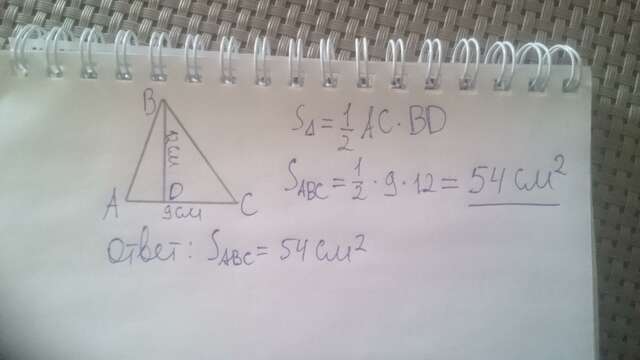 B
12см
A
D
9см
C
S△ = 1/2 AC · BD
S_ABC = 1/2 · 9 · 12 = 54 см²
Ответ: S_ABC = 54 см²